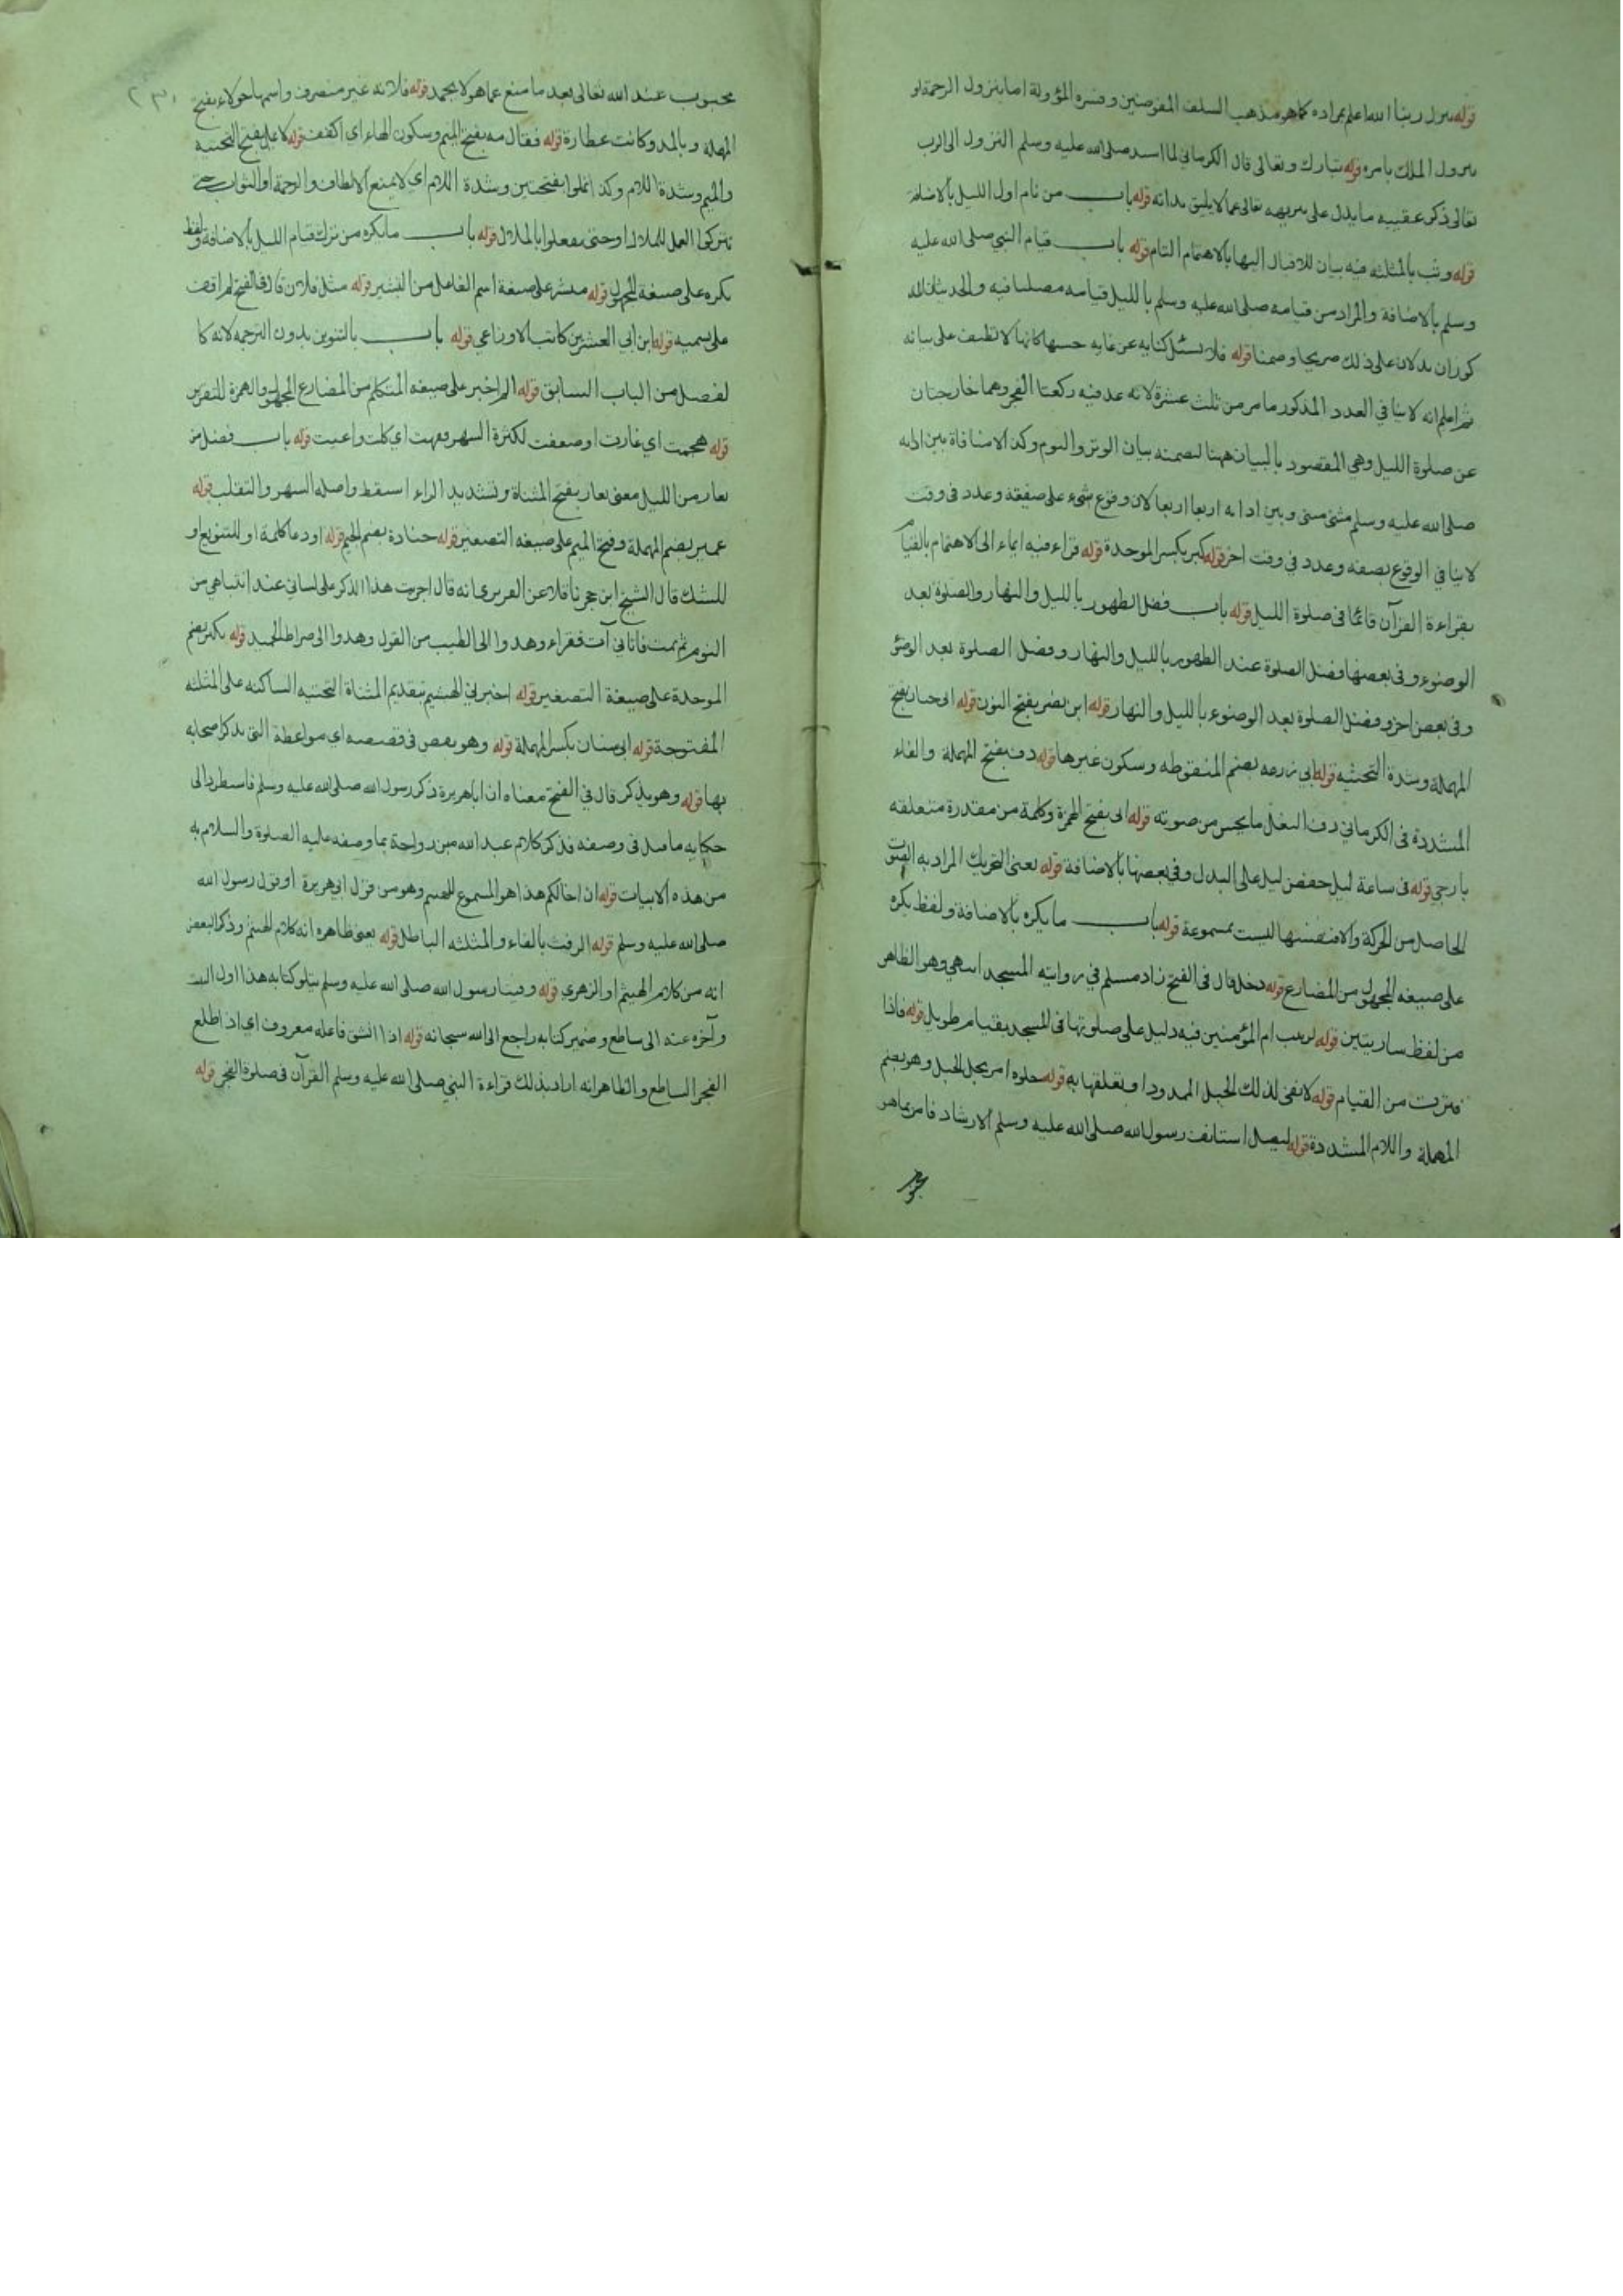 قوله ينزل ربنا الله اعلم بمراده كما هو مذهب السلف المفوضين وفسره المؤولة اما بنزول الرحمة او
بنزول الملك بامره قوله تبارك وتعالى قال الكرماني لما اسند صلى الله عليه وسلم النزول الى الرب
تعالى ذكر عقيبه ما يدل على تنزيهه تعالى عما لا يليق بذاته قوله باب من نام اول الليل بالاضافة
قوله وثب بالمثلثة فيه بيان للاقبال اليها بالاهتمام التام قوله باب قيام النبي صلى الله عليه
وسلم بالاضافة والمراد من قيامه صلى الله عليه وسلم بالليل قيامه مصليا فيه والحديثان المذ
كوران يدلان على ذلك صريحا وضمنا قوله فلا تسئل كناية عن غاية حسنها كانها لا تطيف على بيانه
ثم اعلم انه لا ينافي العدد المذكور ما مر من ثلث عشرة لانه عد فيه ركعتا الفجر وهما خارجتان
عن صلوة الليل وهي المقصود بالبيان ههنا لضمنه بيان الوتر والنوم وكذا لا منافاة بين ادائه
صلى الله عليه وسلم مثنى مثنى وبين ادائه اربعا اربعا لان وقوع شيء على صفة وعدد في وقت
لا ينافي الوقوع بصفة وعدد في وقت اخر قوله كبر بكسر الموحدة قوله قراء فيه ايماء الى الاهتمام بالقيام
بقراءة القرآن قائما في صلوة الليل قوله باب فضل الطهور بالليل والنهار والصلوة بعد
الوضوء وفي بعضها فضل الصلوة عند الطهور بالليل والنهار وفضل الصلوة بعد الوضؤ
وفي بعض اخر وفضل الصلوة بعد الوضوء بالليل والنهار قوله ابن نصر بفتح النون قوله ابي حيان بفتح
المهملة وشدة التحتية قوله ابي زرعه بضم المنقوطه وسكون غيرها قوله دف بفتح المهملة والفاء
المشددة في الكرماني دف النعل ما يحس من صوته قوله اني بفتح الهمزة وكلمة من مقدرة متعلقه
بارجي قوله في ساعة ليل خفض ليل على البدل وفي بعضها بالاضافة قوله يعنى التحريك المراد به الصوت
الحاصل من الحركة والا فنفسها ليست بمسموعة قوله باب ما يكره بالاضافة ولفظ يكره
على صيغه المجهول من المضارع قوله دخل قال في الفتح زاد مسلم في روايته المسجد انتهى وهو الظاهر
من لفظ ساريتين قوله لزينب ام المؤمنين فيه دليل على صلوتها في المسجد بقيام طويل قوله فاذا
فترت من القيام قوله لا نفى لذلك الحبل الممدود او تعلقها به قوله حلوه امر بحل الحبل وهو بضم
المهملة واللام المشددة قوله ليصل استانف رسول الله صلى الله عليه وسلم الارشاد فامر بما هو
محبوب عند الله تعالى بعد ما منع عما هو لا يحمد قوله فلانة غير منصرف واسمها حولاء بفتح
المهملة وبالمد وكانت عطارة قوله فقال مه بفتح الميم وسكون الهاء اي اكفف قوله لا يمل بفتح التحتيه
والميم وشدة اللام وكذا تملوا بفتحتين وشدة اللام اي لا يمنع الالطاف والرحمة او الثواب حتى
تتركوا العمل للملال او حتى تفعلوا بالملال قوله باب ما يكره من ترك قيام الليل بالاضافة ولفظ
يكره على صيغة المجهول قوله مبشر على صيغة اسم الفاعل من التبشير قوله مثل فلان قال في الفتح لم اقف
على تسميه قوله ابن ابي العشرين كاتب الاوزاعي قوله باب بالتنوين بدون الترجمه لانه كا
لفصل من الباب السابق قوله الم اخبر على صيغه المتكلم من المضارع المجهول والهمزة للتقرير
قوله هجمت اي غارت او ضعفت لكثرة السهر ونفهت اي كلت واعيت قوله باب فضل من
تعار من الليل معنى تعار بفتح المثناة وتشديد الراء استيقظ واصله السهر والتقلب قوله
عمير بضم المهملة وفتح الميم على صيغه التصغير قوله جنادة بضم الجيم قوله او دعا كلمة او للتنويع او
للشك قال الشيخ ابن حجر ناقلا عن الفربري انه قال اجريت هذا الذكر على لساني عند انتباهي من
النوم ثم نمت فاتاني آت فقراء وهدوا الى الطيب من القول وهدوا الى صراط الحميد قوله بكير بضم
الموحدة على صيغة التصغير قوله اخبرني الهيثم بتقديم المثناة التحتيه الساكنه على المثلثه
المفتوحة قوله ابي سنان بكسر المهملة قوله وهو يقص في قصصه اي مواعظة التي يذكر اصحابه
بها قوله وهو يذكر قال في الفتح معناه ان ابا هريرة ذكر رسول الله صلى الله عليه وسلم فاستطرد الى
حكاية ما قيل في وصفه فذكر كلام عبد الله بن رواحة بما وصفه عليه الصلوة والسلام به
من هذه الابيات قوله ان اخا لكم هذا هو المسموع للهيثم وهو من قول ابي هريرة او قول رسول الله
صلى الله عليه وسلم قوله الرفث بالفاء والمثلثه الباطل قوله يعنى ظاهره انه كلام الهيثم وذكر البعض
انه من كلام الهيثم او الزهري قوله وفينا رسول الله صلى الله عليه وسلم يتلو كتابه هذا اول البيت
وآخره عنه الى ساطع وضمير كتابه راجع الى الله سبحانه قوله اذا انشق فاعله معروف اي اذا طلع
الفجر الساطع والظاهر انه اراد بذلك قراءة النبي صلى الله عليه وسلم القرآن في صلوة الفجر قوله